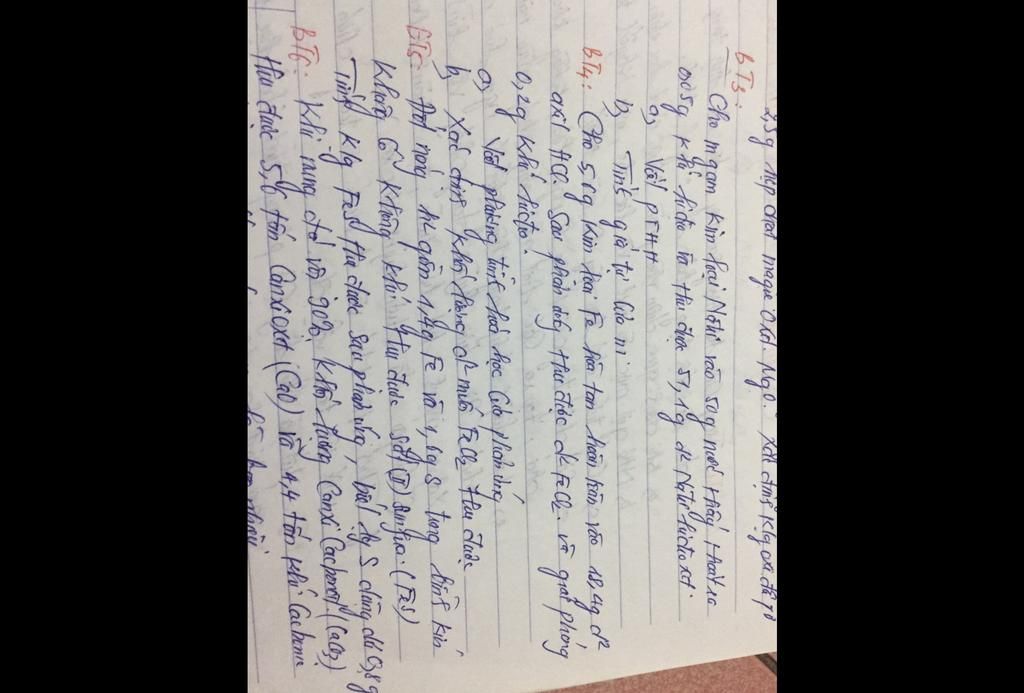 2,5g hợp chất magie oxit. MgO. Xác định klg oxi đã p/ứ
BT3:
Cho m gam kim loại Natri vào 50g nước thấy thoát ra
0,05g khí hiđro và thu được 51,1g dd Natri hiđroxit.
a, Viết PTHH
b, Tính giá trị của m
BT4: Cho 5,6g kim loại Fe hòa tan hoàn toàn vào 18,4g d²
axit HCl. Sau phản ứng thu được dd FeCl2. và giải phóng
0,2g khí hiđro.
a, Viết phương trình hoá học của phản ứng
b, Xác định khối lượng d² muối FeCl2 thu được
BT5: Đốt nóng gồm 1,4g Fe và 1,6g S trong bình kín
không có không khí thu được Sắt (II) Sunfua. (FeS)
Tính klg FeS thu được sau phản ứng, biết lg S dùng dư 0,8g
BT6: Khi nung đá vôi 90% khối lượng Canxi Cacbonat (CaCO3)
thu được 5,6 tấn Canxi oxit (CaO) và 4,4 tấn khí Cacbonic